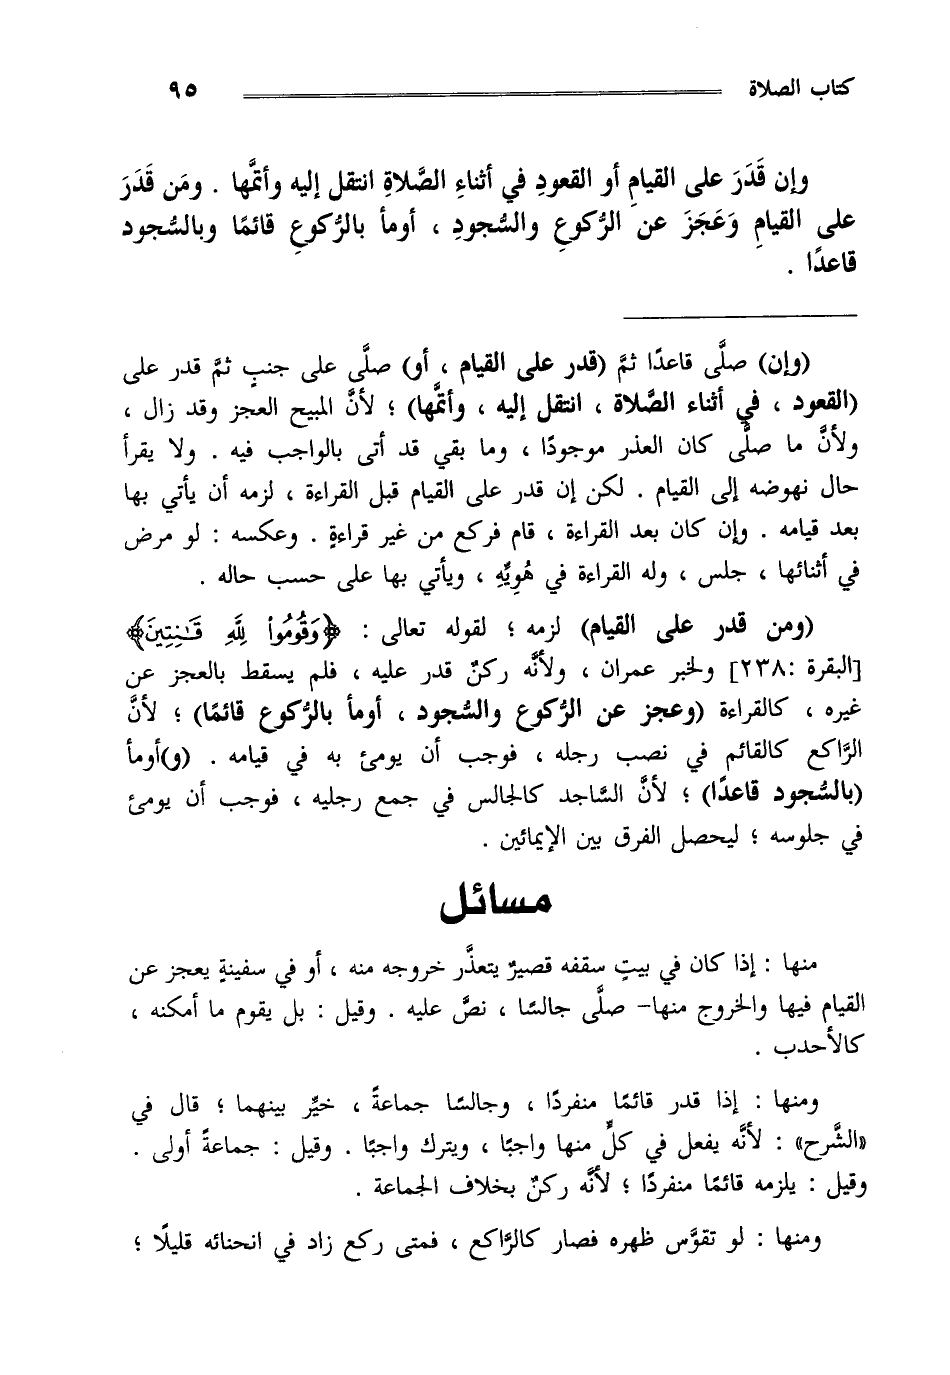 كتاب الصلاة ٩٥
وإن قَدَرَ على القيامِ أو القعودِ في أثناءِ الصَّلاةِ انتقل إليه وأتمَّها . ومَن قَدَرَ
على القيامِ وَعَجَزَ عن الرُّكوعِ والسُّجودِ ، أومأ بالرُّكوعِ قائمًا وبالسُّجود
قاعدًا .
(وإن) صلَّى قاعدًا ثمَّ (قدر على القيام ، أو) صلَّى على جنبٍ ثمَّ قدر على
(القعود ، في أثناء الصَّلاة ، انتقل إليه ، وأتمَّها) ؛ لأنَّ المبيح العجز وقد زال ،
ولأنَّ ما صلَّى كان العذر موجودًا ، وما بقي قد أتى بالواجب فيه . ولا يقرأ
حال نهوضه إلى القيام . لكن إن قدر على القيام قبل القراءة ، لزمه أن يأتي بها
بعد قيامه . وإن كان بعد القراءة ، قام فركع من غير قراءةٍ . وعكسه : لو مرض
في أثنائها ، جلس ، وله القراءة في هُوِيِّه ، ويأتي بها على حسب حاله .
(ومن قدر على القيام) لزمه ؛ لقوله تعالى : ﴿وَقُومُوا۟ لِلَّهِ قَـٰنِتِينَ﴾
[البقرة :٢٣٨] ولخبر عمران ، ولأنَّه ركنٌ قدر عليه ، فلم يسقط بالعجز عن
غيره ، كالقراءة (وعجز عن الرُّكوع والسُّجود ، أومأ بالرُّكوع قائمًا) ؛ لأنَّ
الرَّاكع كالقائم في نصب رجله ، فوجب أن يومئ به في قيامه . (و)أومأ
(بالسُّجود قاعدًا) ؛ لأنَّ السَّاجد كالجالس في جمع رجليه ، فوجب أن يومئ
في جلوسه ؛ ليحصل الفرق بين الإيمائين .
مسائل
منها : إذا كان في بيتٍ سقفه قصيرٌ يتعذَّر خروجه منه ، أو في سفينةٍ يعجز عن
القيام فيها والخروج منها- صلَّى جالسًا ، نصَّ عليه . وقيل : بل يقوم ما أمكنه ،
كالأحدب .
ومنها : إذا قدر قائمًا منفردًا ، وجالسًا جماعةً ، خيِّر بينهما ؛ قال في
«الشَّرح» : لأنَّه يفعل في كلٍّ منها واجبًا ، ويترك واجبًا . وقيل : جماعةً أولى .
وقيل : يلزمه قائمًا منفردًا ؛ لأنَّه ركنٌ بخلاف الجماعة .
ومنها : لو تقوَّس ظهره فصار كالرَّاكع ، فمتى ركع زاد في انحنائه قليلًا ؛